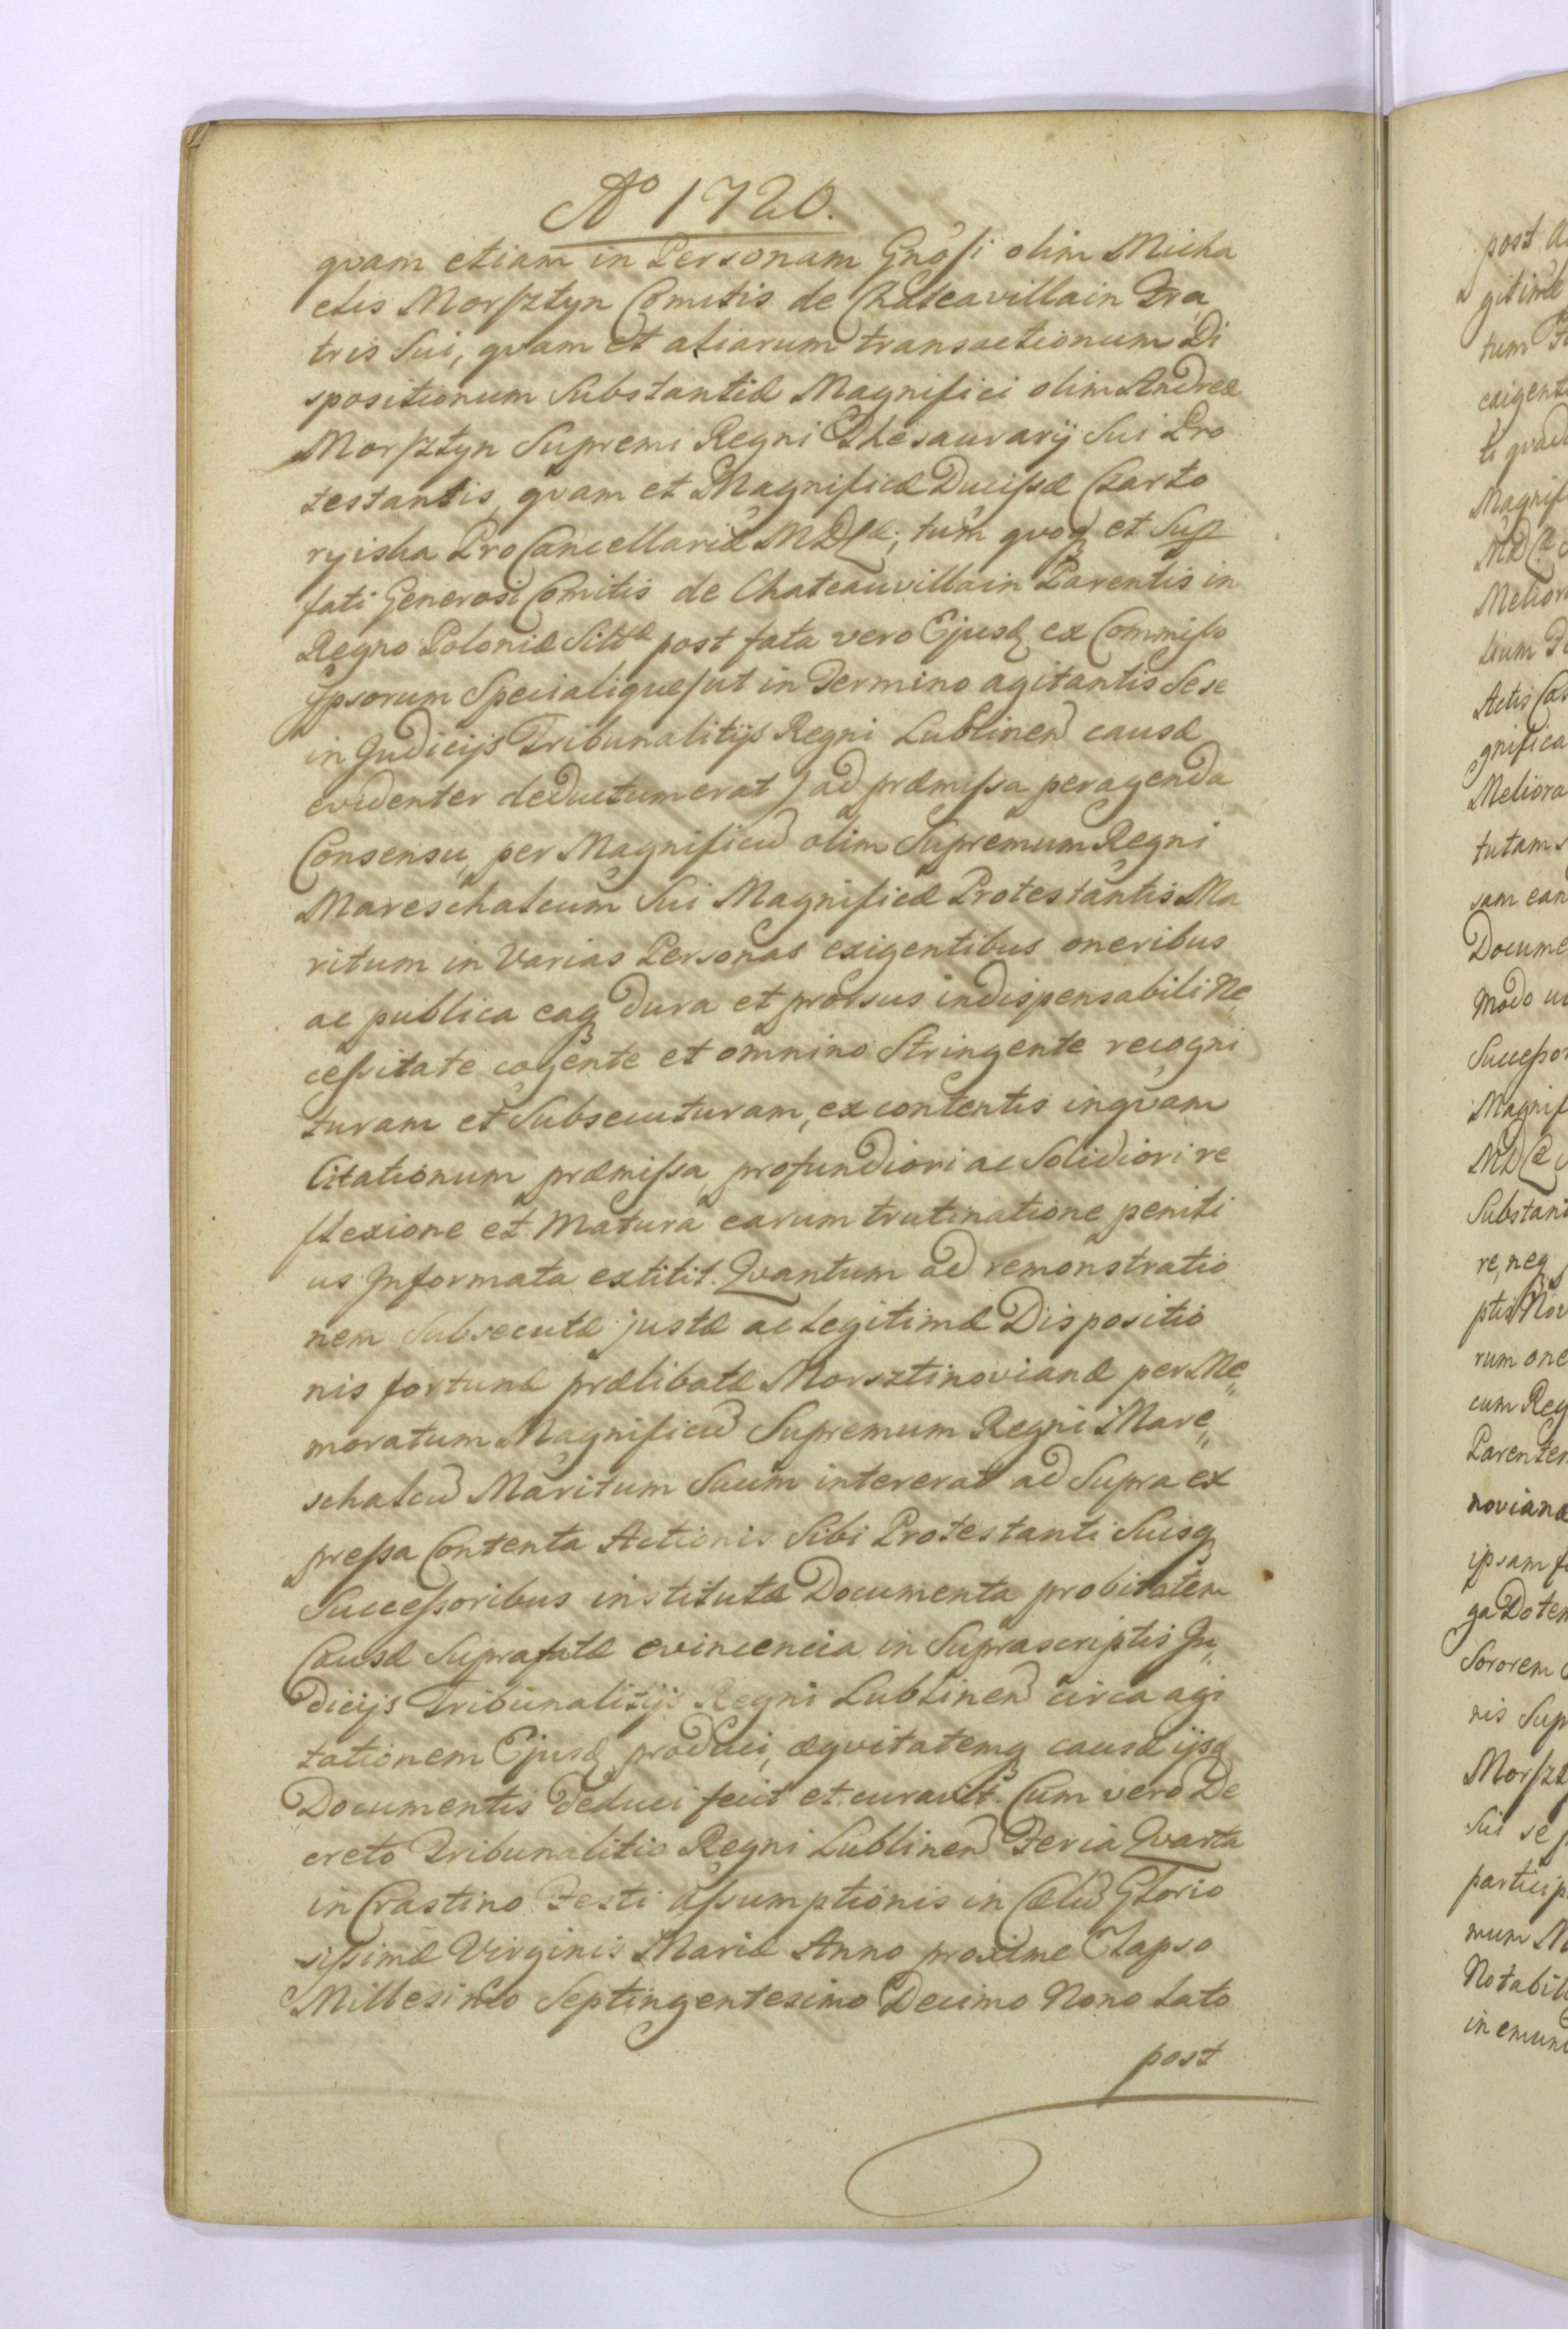 Aº 1720.
qvam etiam in Personam Gnosi olim Micha
elis Morsztyn Comitis de Chateavillain Fra
tris Sui, qvam et aliarum transactionum Di
spositionum Substantiæ Magnifici olim Andreæ
Morsztyn Supremi Regni Thesaurarij Sui Pro
testantis, qvam et Magnificæ Ducissæ Czarto
ryiska ProCancellariæ MDLæ; tum qvoq et Sup
fati Generosi Comitis de Chateauvillain Parentis in
Regno Poloniæ post fata vero Ejusd ex Commisso
Ipsorum Specialique ut in Termino agitantis Sese
in Judicijs Tribunalitijs Regni Lublinen causæ
evidenter deductum erat ) ad præmissa peragenda
Consensu, per Magnificu olim Supremum Regni
Mareschalcum Sui Magnificæ Protestantis Ma
ritum in Varias Personas exigentibus oneribus
ac publica eaq dura et prorsus indispensabili Ne
cessitate cogente et omnino Stringente recogni
turam et Subsecuturam, ex contentis inqvam
Citationum præmissa, profundiori ac Solidiori re
flexione et Matura earum trutinatione peniti
us Informata extitit. Qvantum ad remonstratio
nem Subsecutæ justæ ac Legitimæ Dispositio
nis fortunæ prælibatæ Morsztinovianæ per Me„
moratum Magnificu Supremum Regni Mare„
schalcu Maritum Suum intererat ad Supra ex
pressa Contenta Actionis Sibi Protestanti Suisq
Successoribus institutæ Documenta probitatem
Causæ Suprafatæ evincencia in Suprascriptis Ju„
dicijs Tribunalitijs Regni Lublinen circa agi
tationem Ejusd produci, æqvitatemq causæ ijsd
Documentis deduci fecit et curavit. Cum vero De
creto Tribunalitio Regni Lublinen Feria Qvarta
in Crastino Festi Assumptionis in Cælu Glorio
sissimæ Virginis Mariæ Anno proxime Elapso
Millesimo Septingentesimo Decimo Nono Lato
post
post
tum
Magnif
Actis
Meliora
tutam
Docume
modo
Successor
Magnif
Substant
re, neq
rum one
cum Reg
Parentem
noviana
ipsam
Sororem
ris Sup
Morsz
Sui se
particip
mum
Notabil